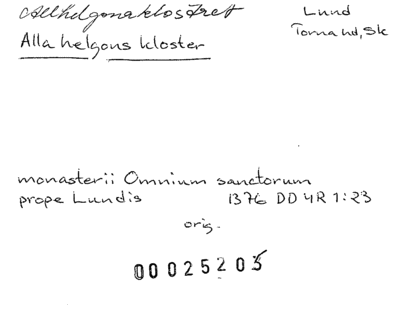 Allhelgonaklostret
Lund
Alla helgons kloster
Torna hd, Sk
monasterii Omnium sanctorum
prope Lundis 1376 DD 4R 1:23
orig.
00025203